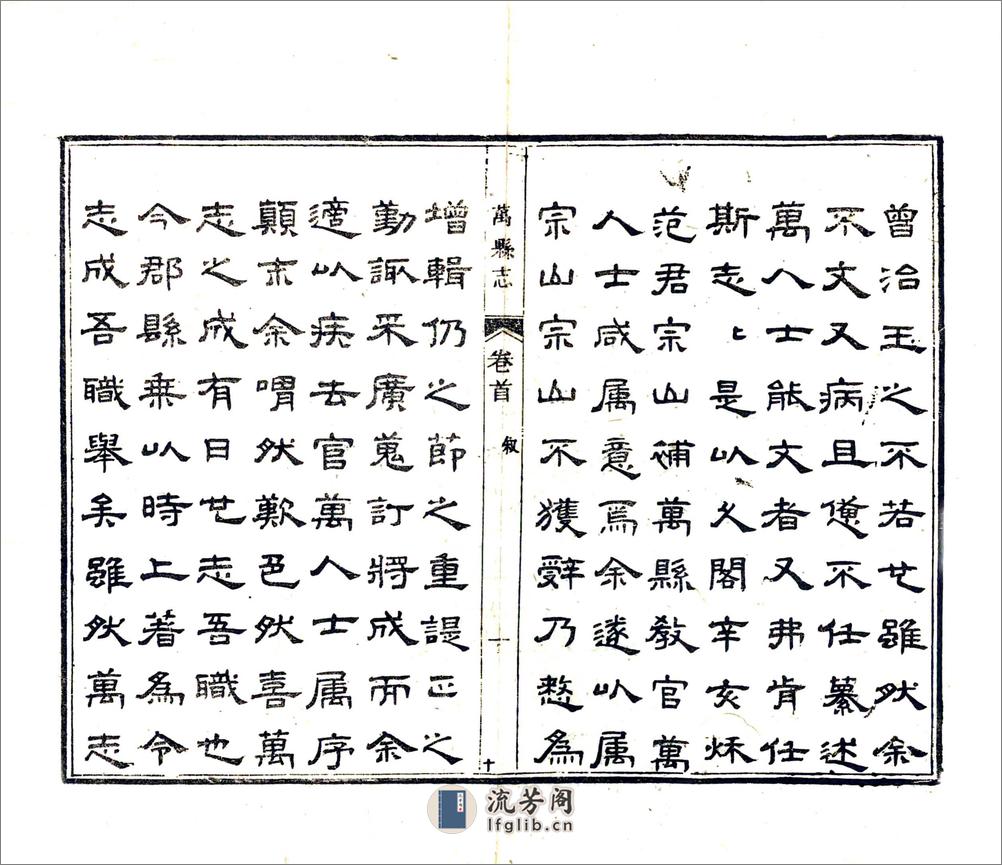 曾治玉之不若也雖然余
不文又病且憊不任纂述
萬人士能文者又弗肯任
斯志〻是以久閣辛亥秌
范君宗山補萬縣教官萬
人士咸属意焉余遂以属
宗山宗山不獲辭乃愁為
萬縣志
卷首
敘
十
增輯仍之節之重諟正之
勤諏采廣蒐訂將成而余
適以疾去官萬人士属序
顛末余喟然歎邑然喜萬
志之成有日也志吾職也
今郡縣乗以時上著為令
志成吾職舉矣雖然萬志
流芳阁
lfglib.cn